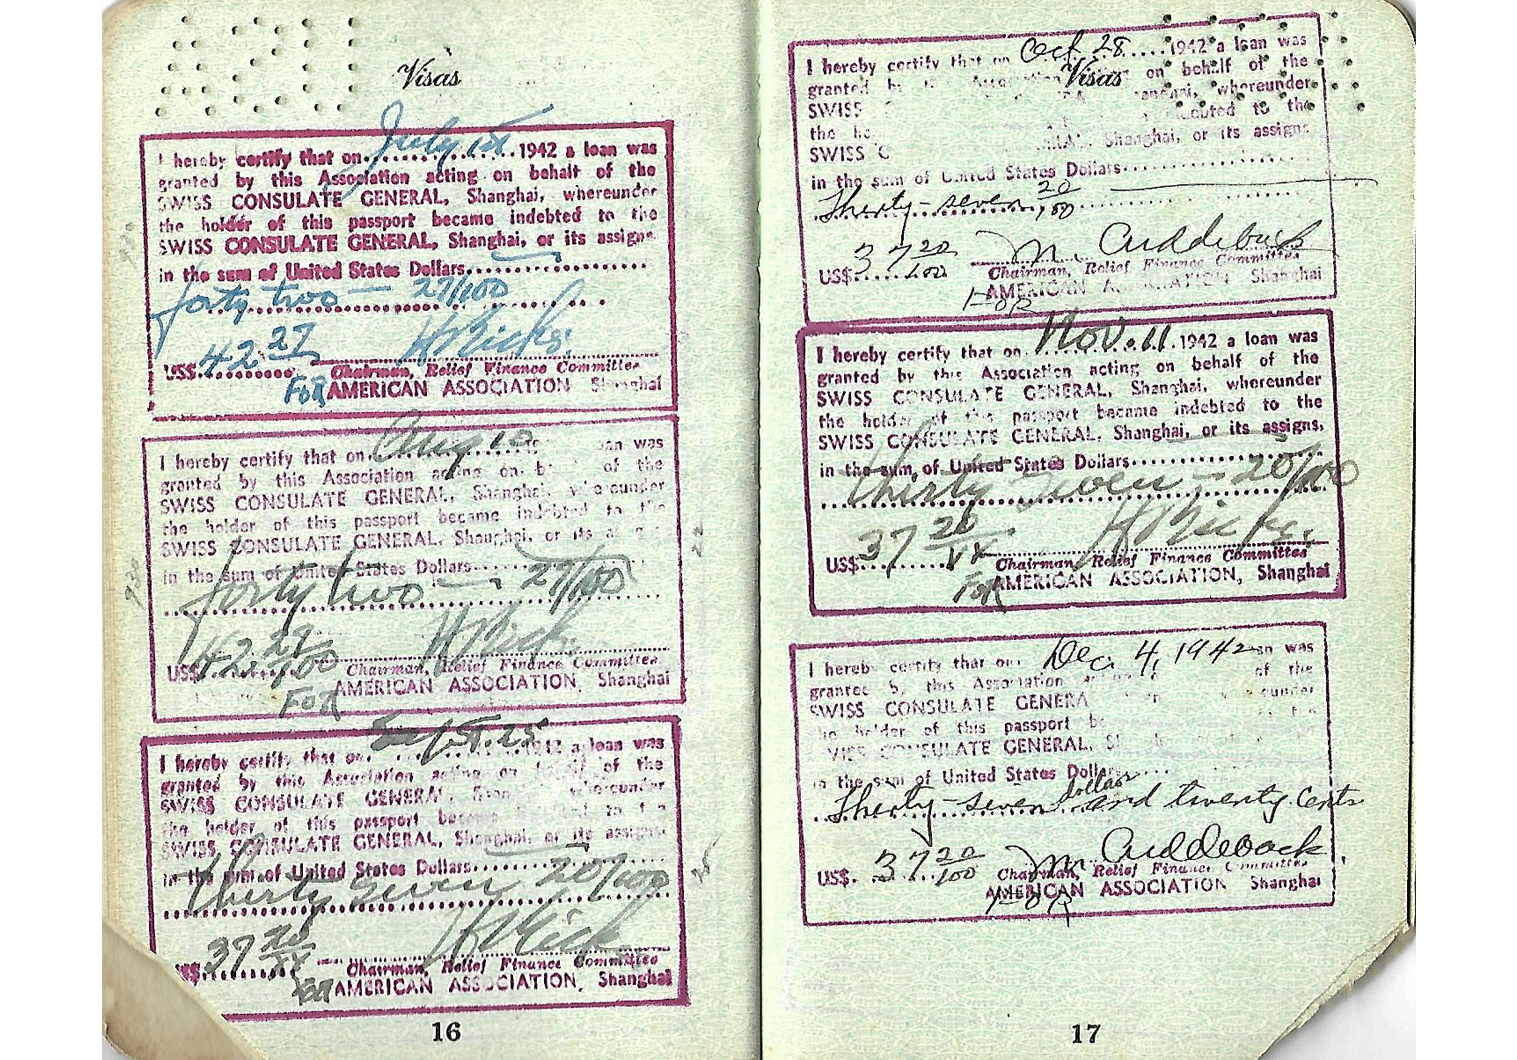 Visas
July 1st
I hereby certify that on ............ 1942 a loan was
granted by this Association acting on behalf of the
SWISS CONSULATE GENERAL, Shanghai, whereunder
the holder of this passport became indebted to the
SWISS CONSULATE GENERAL, Shanghai, or its assigns.
in the sum of United States Dollars
forty two — 27/100
US$ 42 27 H Ricks
Chairman, Relief Finance Committee
FOR AMERICAN ASSOCIATION Shanghai
I hereby certify that on Aug 10 loan was
granted by this Association acting on b of the
SWISS CONSULATE GENERAL, Shanghai, whereunder
the holder of this passport became indebted to the
SWISS CONSULATE GENERAL, Shanghai, or its
in the sum of United States Dollars
forty two — 27/100
US$ 42 27/100
Chairman, Relief Finance Committee.
FOR AMERICAN ASSOCIATION, Shanghai
Sept. 25
I hereby certify that on 1942 a loan was
granted by this Association acting on behalf of the
SWISS CONSULATE GENERAL, whereunder
the holder of this passport
SWISS CONSULATE GENERAL, Shanghai, or its assigns.
in the sum of United States Dollars
thirty seven 20/100
US$ 37 20/xx
Chairman, Relief Finance Committee
FOR AMERICAN ASSOCIATION, Shanghai
16
Visas
I hereby certify that on Oct. 28 1942 a loan was
granted b Association on behalf of the
SWISS whereunder
the ho to the
SWISS C Shanghai, or its assigns
in the sum of United States Dollars
Thirty-seven 20/100
US$ 37 20/100 M. Cuddeback
Chairman, Relief Finance Committee
FOR AMERICAN ASSOCIATION Shanghai
I hereby certify that on Nov. 11 1942 a loan was
granted by this Association acting on behalf of the
SWISS CONSULATE GENERAL, Shanghai, whereunder
the holder of this passport became indebted to the
SWISS CONSULATE GENERAL, Shanghai, or its assigns,
in the sum of United States Dollars
thirty seven — 20/100
US$ 37 20/xx
Chairman, Relief Finance Committee
FOR AMERICAN ASSOCIATION, Shanghai
I hereb certify that on Dec. 4, 1942 was
granted b this Association of the
SWISS CONSULATE GENERA
holder of this passport be
CONSULATE GENERAL,
in the sum of United States Dollars
Thirty-seven dollars and twenty cents
US$. 37 20/100 M. Cuddeback
Chairman, Relief Finance Committee
FOR AMERICAN ASSOCIATION Shanghai
17